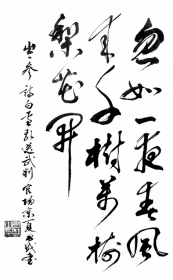 忽如一夜春風
来千樹萬樹
梨花開
岑参詩白雪歌送武判官